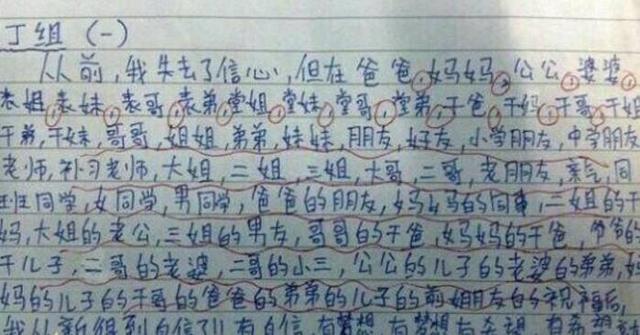 丁组 (一)
从前,我失去了信心,但在爸爸,妈妈,公公,婆婆,
表姐,表妹,表哥,表弟,堂姐,堂妹,堂哥,堂弟,干爸,干妈,干哥,干姐
干弟,干妹,哥哥,姐姐,弟弟,妹妹,朋友,好友,小学朋友,中学朋友
老师,补习老师,大姐,二姐,三姐,大哥,二哥,老朋友,亲戚,同
班同学,女同学,男同学,爸爸的朋友,妈妈的同事,二姐的干
妈,大姐的老公,三姐的男友,哥哥的干爸,妈妈的干爸,爷爷的
干儿子,二哥的老婆,二哥的小三,公公的儿子的老婆的弟弟,
妈的儿子的干哥的爸爸的弟弟的儿子的前姐朋友的祝福后,
我从新得到自信了!!有自信,有梦想,